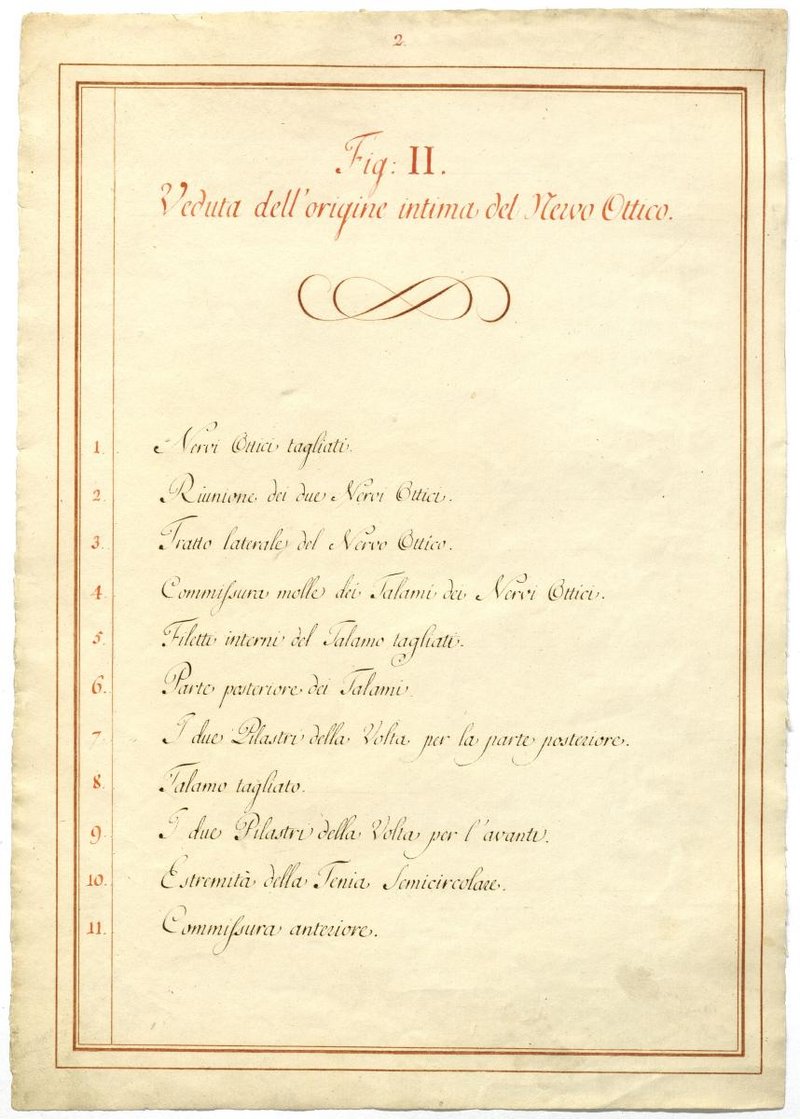 2
Fig: II.
Veduta dell'origine intima del Nervo Ottico.
1. Nervi Ottici tagliati.
2. Riunione dei due Nervi Ottici.
3. Tratto laterale del Nervo Ottico.
4. Commiſsura molle dei Talami dei Nervi Ottici.
5. Filetti interni del Talamo tagliati.
6. Parte posteriore dei Talami.
7. I due Pilastri della Volta per la parte posteriore.
8. Talamo tagliato.
9. I due Pilastri della Volta per l'avanti.
10. Estremità della Tenia Semicircolare.
11. Commiſsura anteriore.